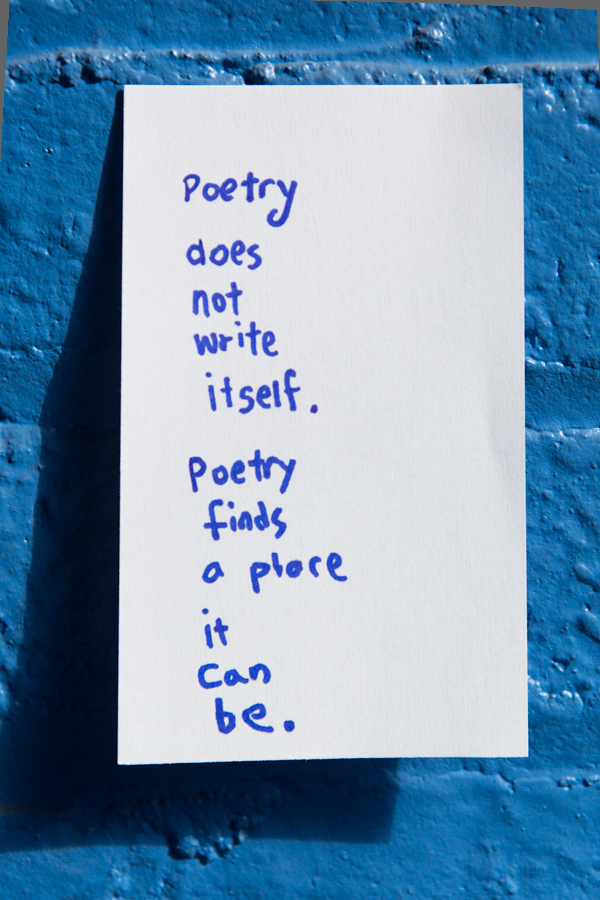 Poetry
does
not
write
itself.
Poetry
finds
a place
it
can
be.